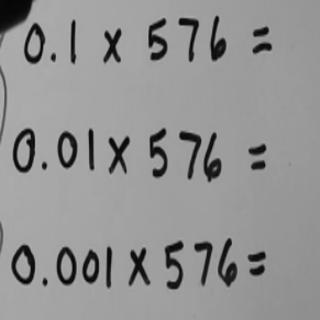 0.1 x 576 =
0.01 x 576 =
0.001 x 576 =